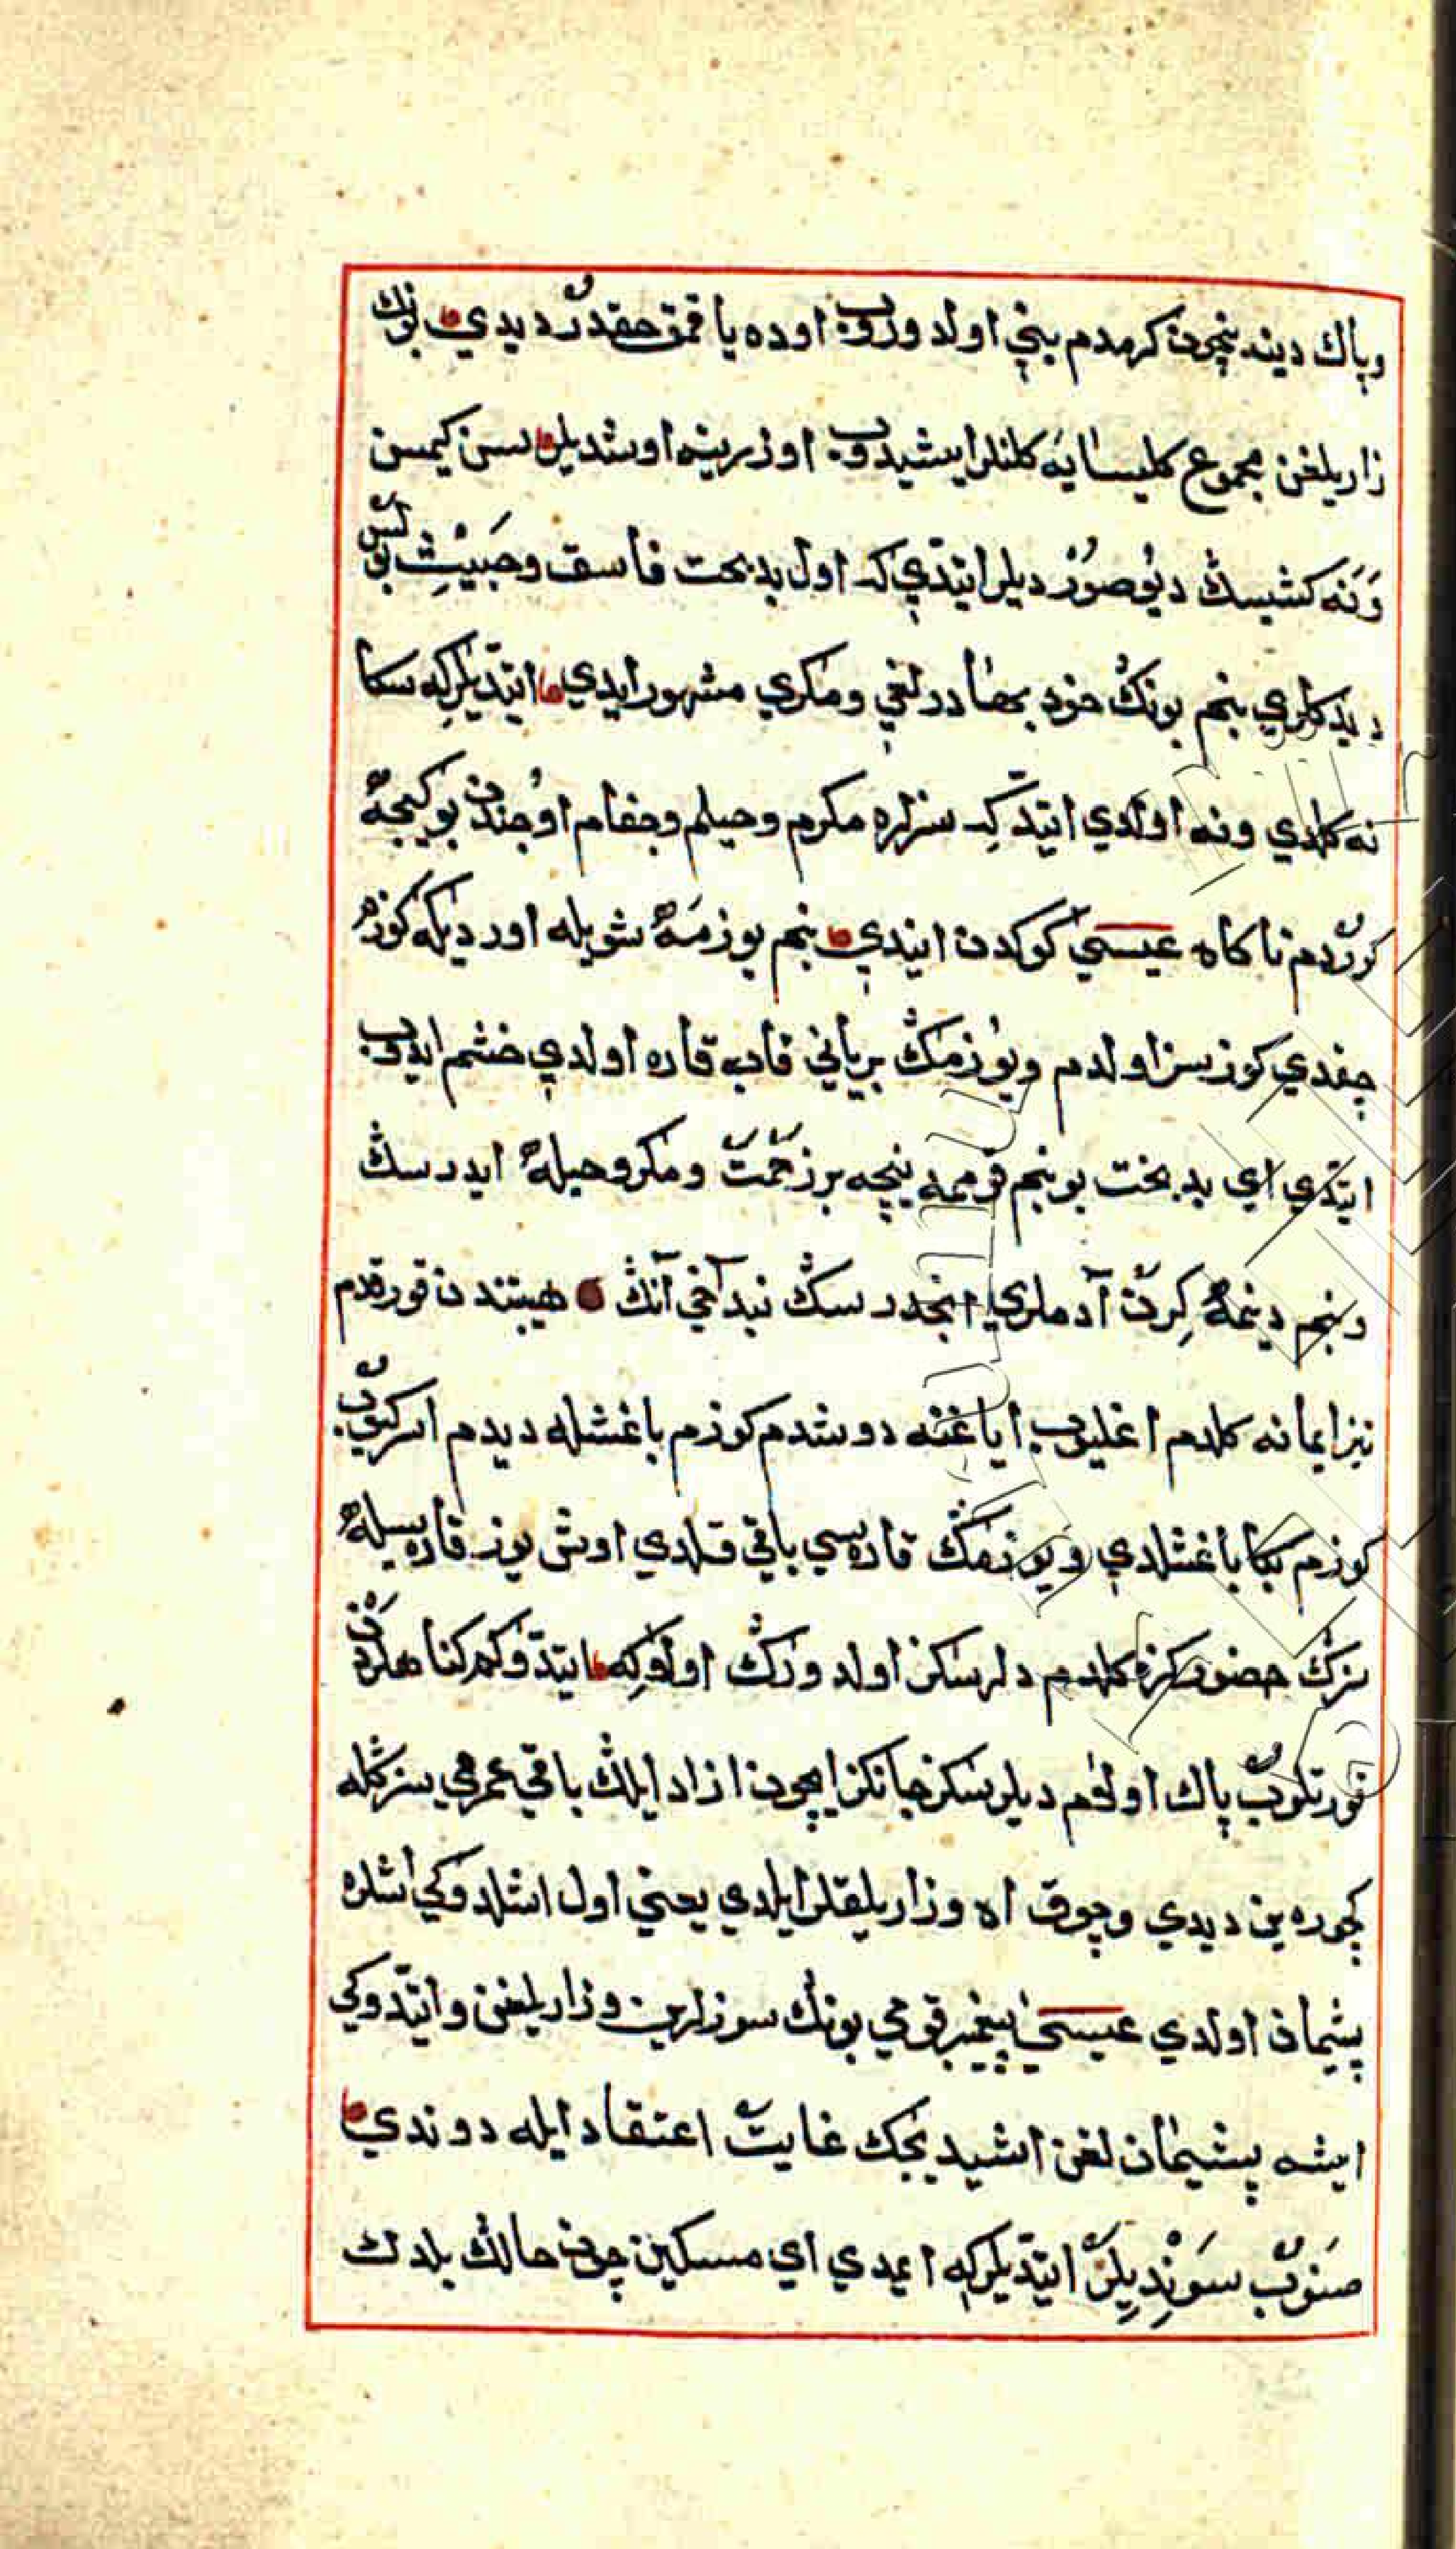 وپاك ديند نيچون كرمدم بني اولدوروب اوده ياقمق حقدر ديدي بونك
زاريلغن مجموع كليسايه كلنلر ايشيدوب اوزرينه اوشديلر سن كيمسن
ونه كشيسڭ ديو صوردیلر ايتدي كه اول بدبخت فاسق وخبيث بولس
ديدكلري بنم بونڭ خود بهادرلغي ومكري مشهور ايدي ايتديلركه سكا
نه كلدي ونه اولدي ايتدكه سزلره مكرم وحيلم وجفام اوجندن بو كيجه
كوردم ناكاه عيسي كوكدن ايندي بنم يوزمه شويله اوردیكه كوزم
چقدي كوزسز اولدم ويوزمڭ بر ياني قاب قاره اولدي خشم ايدوب
ايتدي اي بدبخت بو بنم قوممه نيچه بر زحمت ومكر وحيله ايدرسڭ
وبنم دينمه كرن آدملري انجدرسڭ نيد آخي آنڭ هيبتندن قورقدم
تيز ايمانه كلدم اغليوب اياغنه دوشدم كوزم باغشله ديدم اسركيوب
كوزم بكا باغشلدي ويوزمڭ قاره سي باقي قلدي اوش يوز قاره سيله
سزڭ حضوركزه كلدم دلرسكز اولدورڭ اولوكه ايتدوكم كناهلردن
قورتلوب پاك اولم ديلرسكز جانكز ايچون ازاد ايلڭ باقي عمرمي سزڭله
كچوره ين ديدي وچوق اه وزاريلقلر ايلدي يعني اول اشلدوكي اشلره
پشيمان اولدي عيسي پيغمبر قومي بونڭ سوزلرين وزاريلغن وايتدوكي
ايشه پشيمانلغن اشيديجك غايت اعتقاد ايله دوندي
صنوب سونديلر ايتديلركه ايمدي اي مسكين چون حالڭ بلدڭ